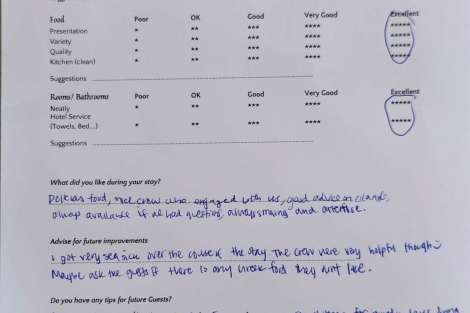 Food Poor OK Good Very Good Excellent
Presentation * ** *** **** *****
Variety * ** *** **** *****
Quality * ** *** **** *****
Kitchen (clean) * ** *** **** *****
Suggestions
Rooms/ Bathrooms Poor OK Good Very Good Excellent
Neatly * ** *** **** *****
Hotel Service
(Towels, Bed...) * ** *** **** *****
Suggestions
What did you like during your stay?
Delicious food, nice crew who engaged with us, good advice on islands,
always available if we had questions, always smiling and attentive.
Advise for future improvements
I got very sea sick over the course of the stay. The crew were very helpful though :)
Maybe ask the guests if there is any greek food they don't like.
Do you have any tips for future Guests?